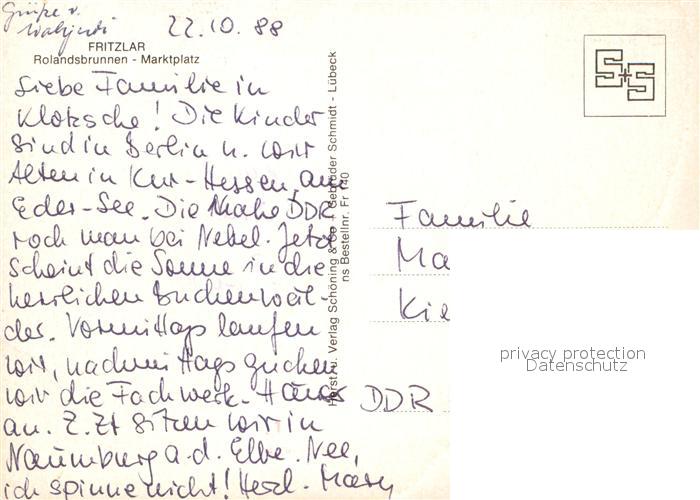 Grüße v.
22.10.88
FRITZLAR
Rolandsbrunnen - Marktplatz
Liebe Familie in
Klotzsche! Die Kinder
sind in Berlin u. wir
Alten in Kur-Hessen, am
Eder-See. Die nahe DDR
roch man bei Nebel. Jetzt
scheint die Sonne in die
herrlichen Buchenwäl-
der. Vormittags laufen
wir, nachmittags gucken
wir die Fachwerk-Häuser
an. Z.Zt sitzen wir in
Naumburg a.d. Elbe. Nee,
ich spinne nicht! Herzl.
Horst u. Verlag Schöning & Co + Gebrüder Schmidt - Lübeck
ns Bestellnr. Fr 140
S+S
Familie
Ma
Kie
DDR
privacy protection
Datenschutz